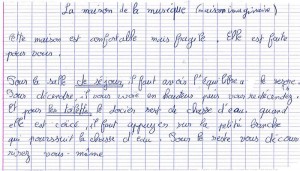 La maison de la musique (maison imaginaire)
Cette maison est confortable mais fragile. Elle est faite
pour vous.
Sous la salle de séjour, il faut avoir l'équilibre
Pour descendre, il vous en hauteur puis vous redescendez.
Et pour les toilettes le docier sert de chasse d'eau, quand
elle est , il faut appuyer sur la petite branche
qui la chasse d'eau. Pour le reste vous décou-
vrirez vous-même